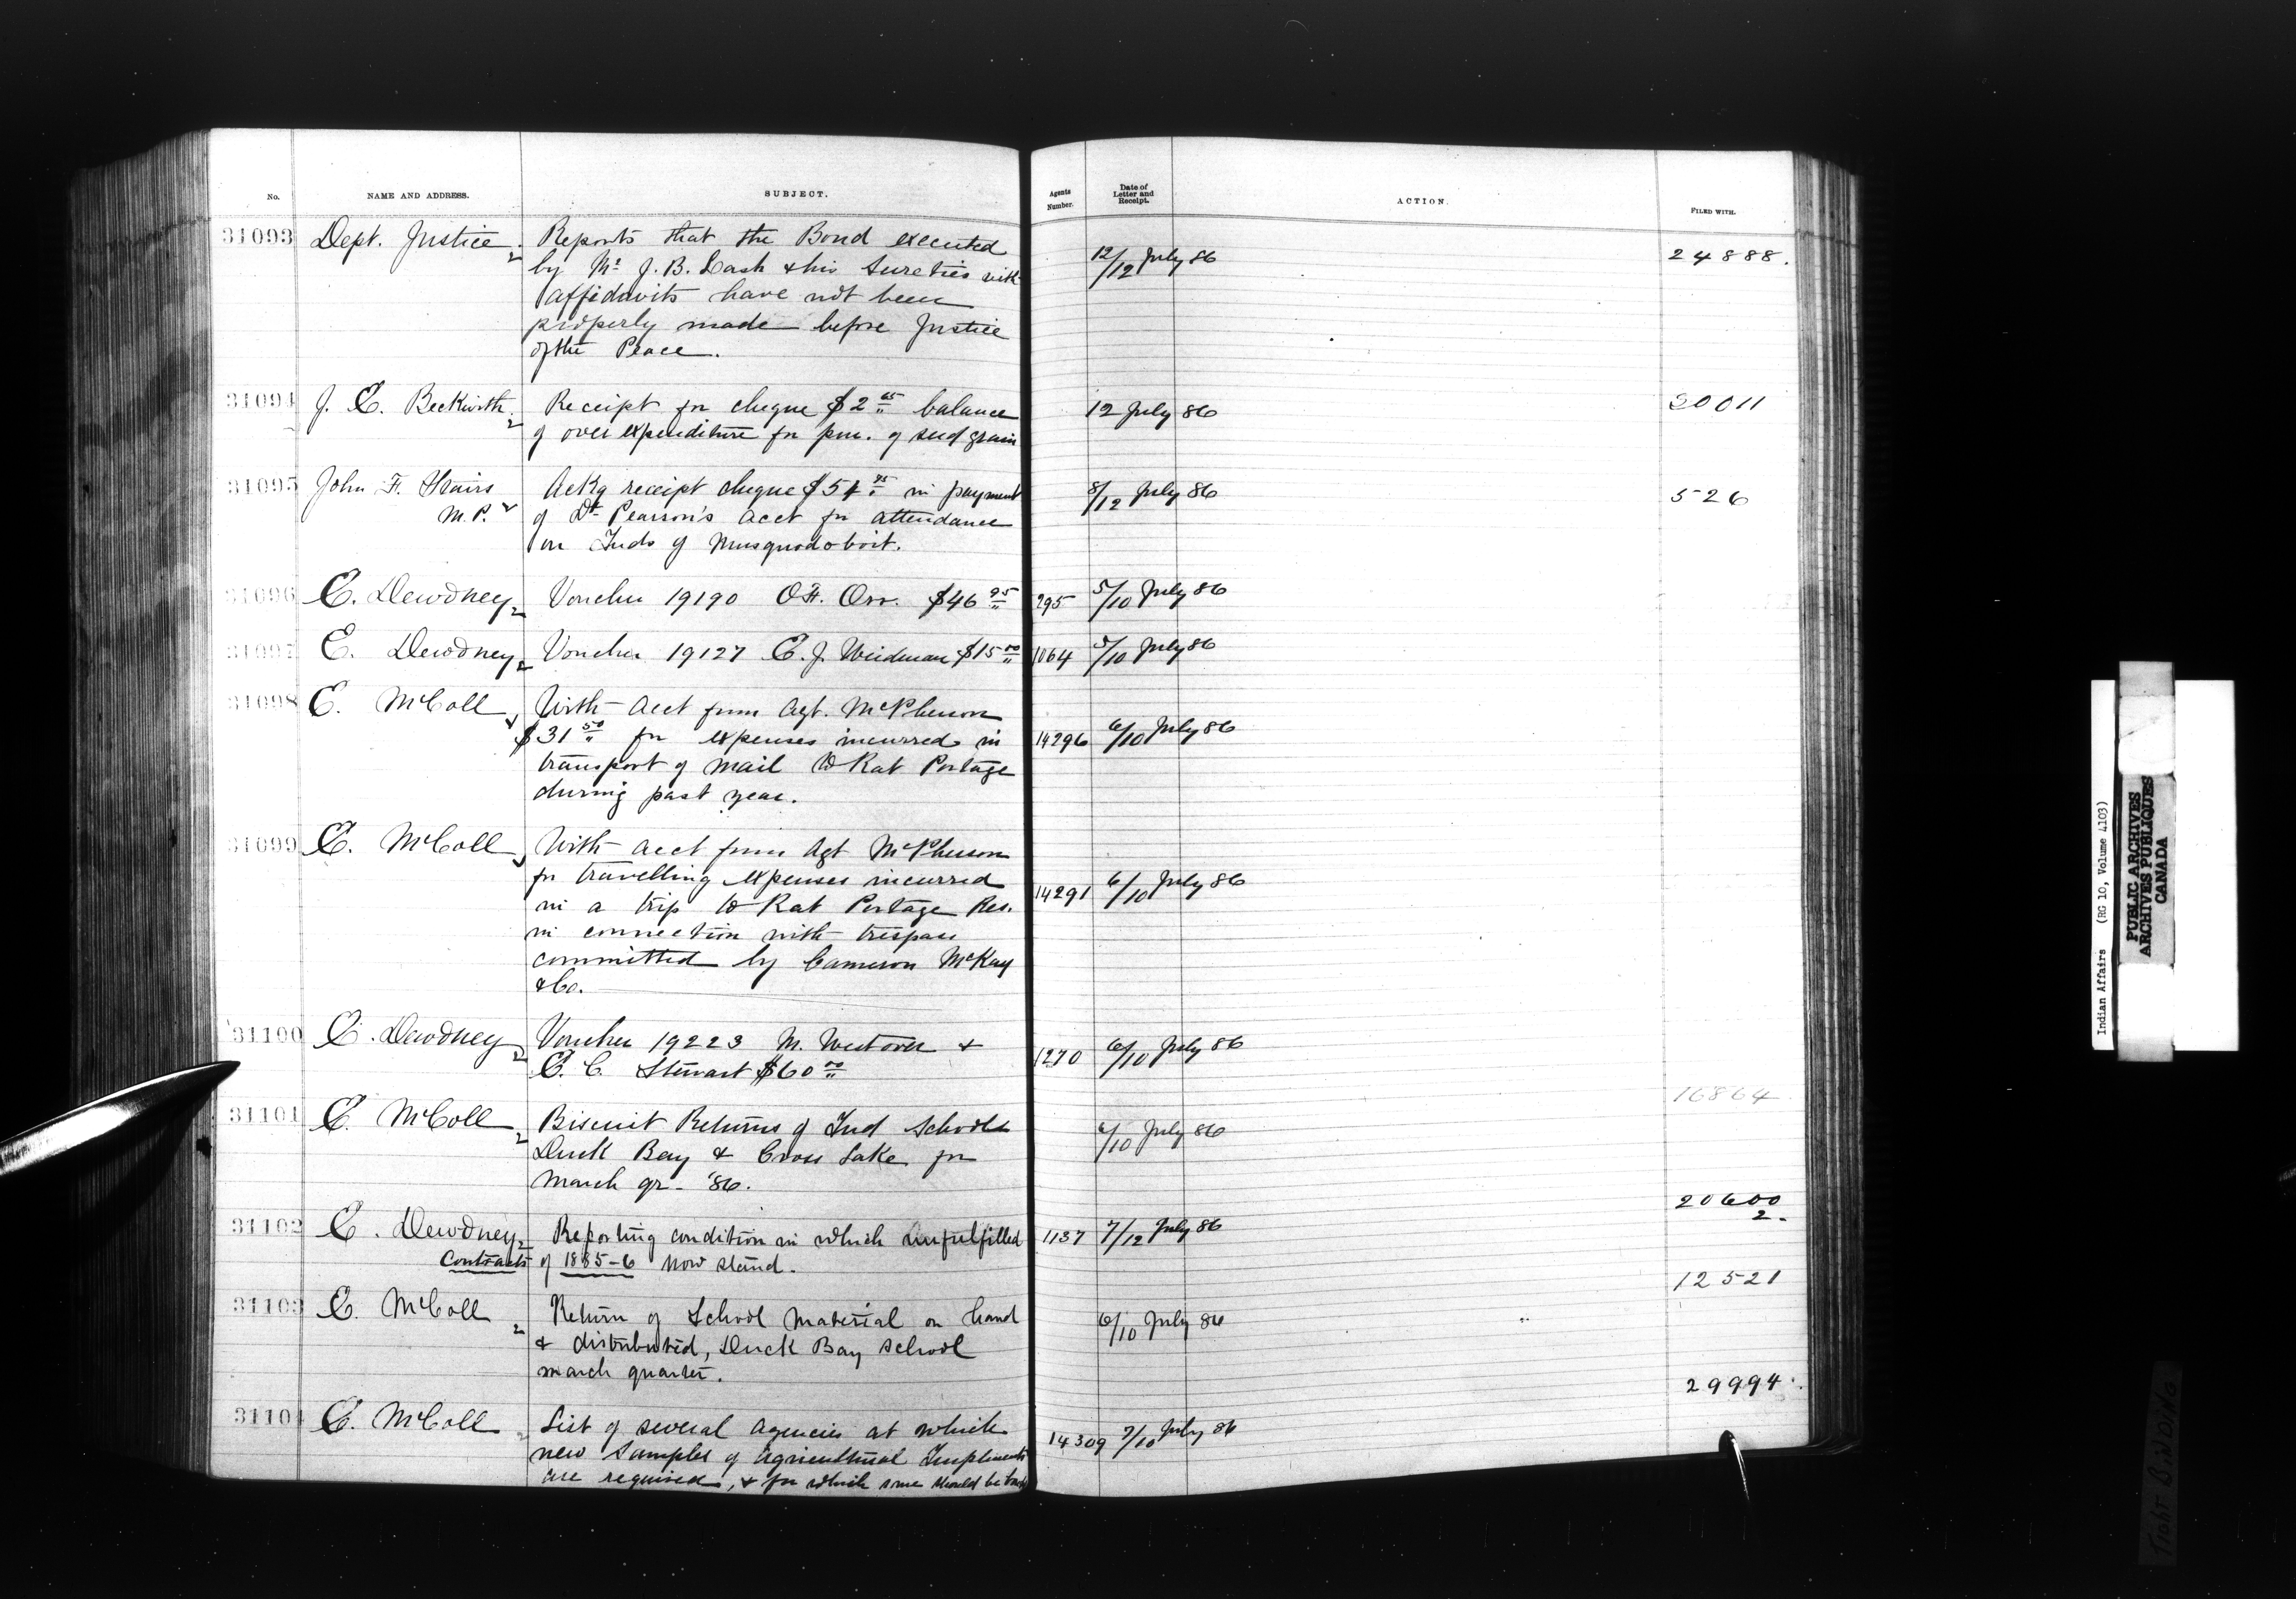 No.
NAME AND ADDRESS.
SUBJECT.
Agents Number.
Date of Letter and Receipt.
ACTION.
FILED WITH.
31093 Dept. Justice. Reports that the Bond executed
by Mr J. B. Lash & his Sureties with
affidavits have not been
properly made before Justice
of the Peace.
12/12 July 86
24888.
31094 J. E. Beckwith. Receipt for cheque $2 65 balance
of over expenditure for pur. of seed grain
12 July 86
30011
31095 John F. Stairs Ackg receipt cheque $54 75 in payment
M.P. of Dr Pearson's acct for attendance
on Inds of Musquodoboit.
8/12 July 86
526
31096 E. Dewdney Voucher 19190 Orr. $46 95
295 5/10 July 86
31097 E. Dewdney Voucher 19127 E. J. Weidman $15 00
1064 5/10 July 86
31098 E. McColl With acct from Agt. McPherson
$31 50 for expenses incurred in
transport of mail to Rat Portage
during past year.
14296 6/10 July 86
31099 E. McColl With acct from Agt McPherson
for travelling expenses incurred
in a trip to Rat Portage Res.
in connection with trespass
committed by Cameron McKay
& Co.
14291 6/10 July 86
31100 E. Dewdney Voucher 19223 M. Westover &
E. C. Stewart $60 00
1270 6/10 July 86
31101 E. McColl Biscuit Returns of Ind Schools
Duck Bay & Cross Lake for
March qr- '86.
6/10 July 86
16864
31102 E. Dewdney Reporting condition in which unfulfilled
Contracts of 1885-6 now stand.
1137 7/12 July 86
20600
2.
31103 E. McColl Return of School material on hand
& distributed, Duck Bay school
march quarter.
6/10 July 86
12521
31104 E. McColl List of several agencies at which
new samples of agricultural Implements
are required, & for which some should be
14309 7/10 July 86
29994.
Indian Affairs (RG 10, Volume 4103)
PUBLIC ARCHIVES
ARCHIVES PUBLIQUES
CANADA
TIGHT BINDING